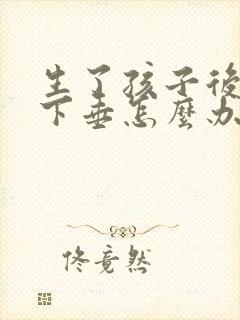 生了孩子後
下垂怎麼办
佟竟然